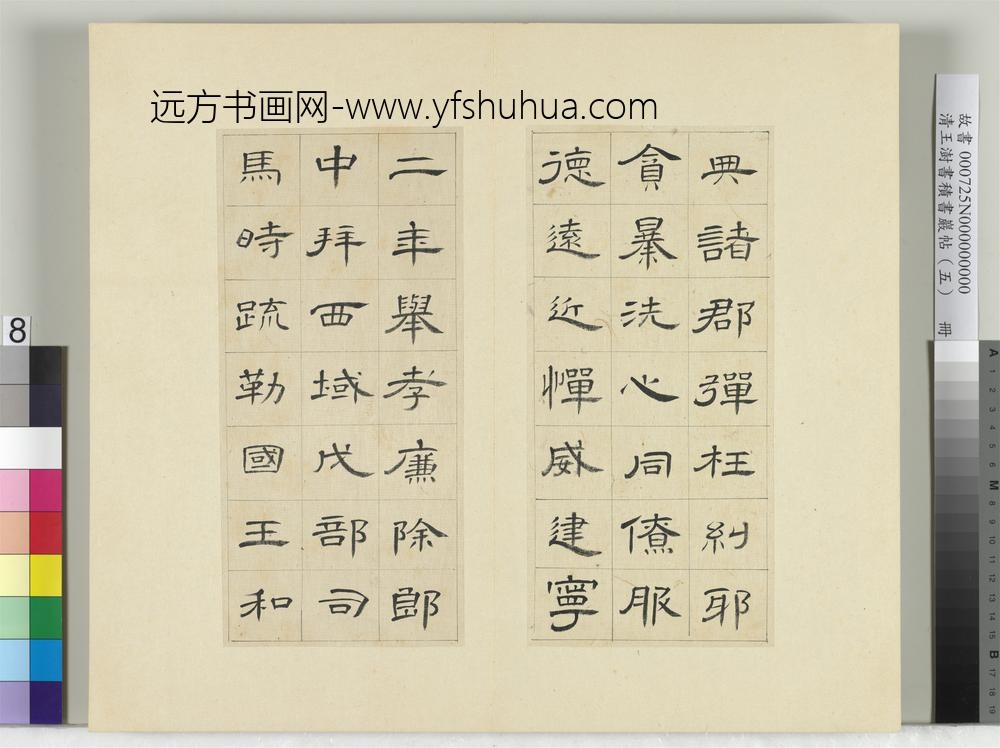 远方书画网-www.yfshuhua.com
典諸郡彈枉糾耶
貪暴洗心同僚服
德遠近憚威建寧
二年舉孝廉除郎
中拜西域戊部司
馬時疏勒國王和
故書 000725N000000000
清王澍書積書巖帖（五） 冊
8
A 1 2 3 4 5 6 M 8 9 10 11 12 13 14 15 B 17 18 19